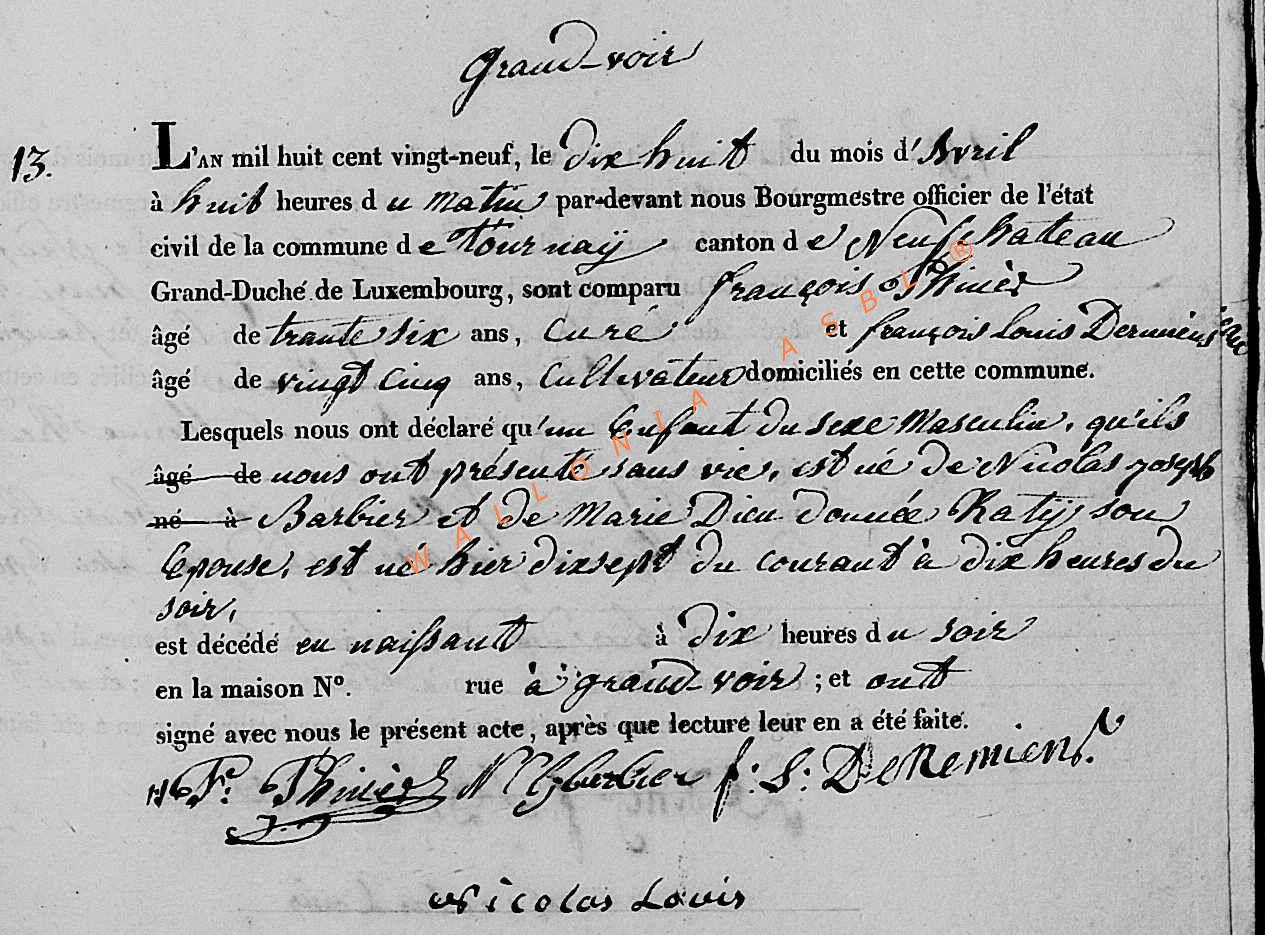 Grand-voir
13.
L'AN mil huit cent vingt-neuf, le dix huit du mois d'Avril
à huit heures du matin par-devant nous Bourgmestre officier de l'état
civil de la commune de Tournaÿ canton de Neufchateau
Grand-Duché de Luxembourg, sont comparu françois Thinès
âgé de trante six ans, Curé et françois louis Dermiens
âgé de vingt cinq ans, Cultivateur domiciliés en cette commune.
Lesquels nous ont déclaré qu'un Enfant du sexe Masculin, qu'ils
âgé de nous ont présenté sans vie, est né de Nicolas joseph
né à Barbier et de Marie Dieu donnée Katÿ, son
Epouse, est né hier dixsept du courant à dix heures du
soir,
est décédé en naissant à dix heures du soir
en la maison N°. rue à grand-voir ; et ont
signé avec nous le présent acte, après que lecture leur en a été faite.
Fr. Thinès N Barbier f: L: DeRemiens.
Nicolas Louis
WALLONIA ASBL ®